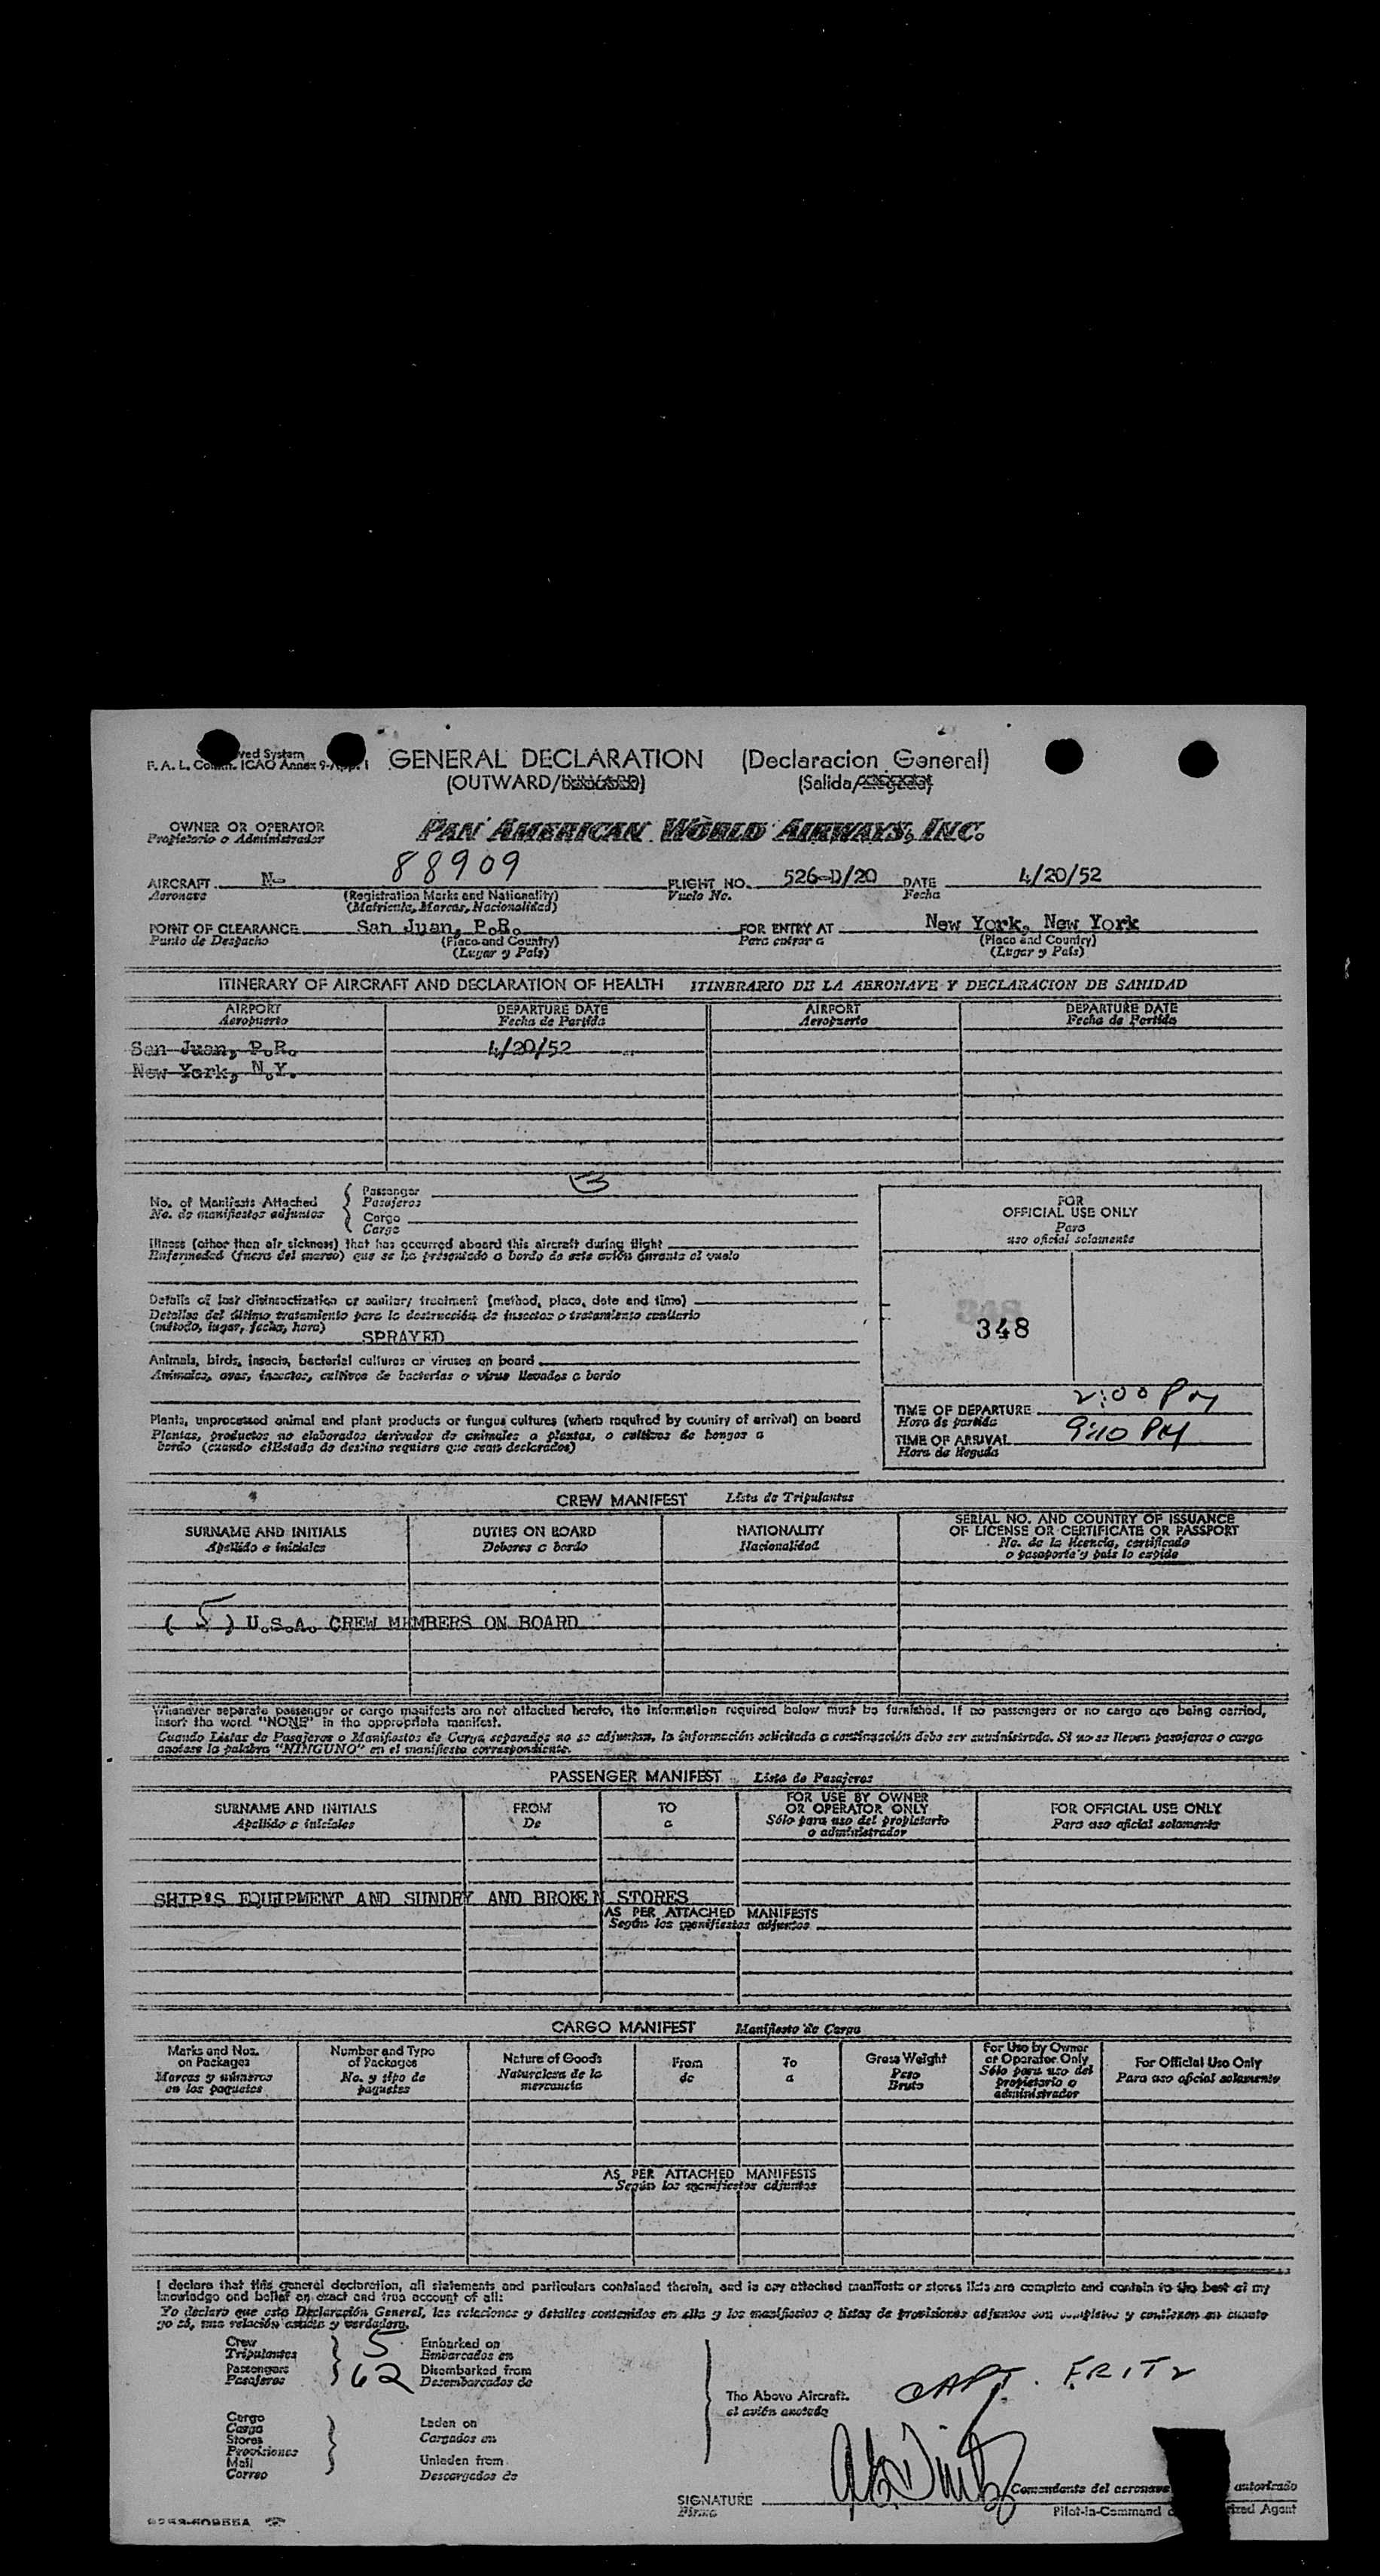 GENERAL DECLARATION (Declaracion General)
(OUTWARD/ (Salida/
F. A. L. Comm. ICAO Annex 9-App. I
OWNER OR OPERATOR PAN AMERICAN WORLD AIRWAYS, INC.
Propietario o Administrador
AIRCRAFT N- 88909 FLIGHT NO. 526-D/20 DATE 4/20/52
Aeronave (Registration Marks and Nationality) Vuelo No. Fecha
(Matricula, Marcas, Nacionalidad)
POINT OF CLEARANCE San Juan, P.R. FOR ENTRY AT New York, New York
Punto de Despacho (Place and Country) Para entrar a (Place and Country)
(Lugar y País) (Lugar y País)
ITINERARY OF AIRCRAFT AND DECLARATION OF HEALTH ITINERARIO DE LA AERONAVE Y DECLARACION DE SANIDAD
AIRPORT DEPARTURE DATE AIRPORT DEPARTURE DATE
Aeropuerto Fecha de Partida Aeropuerto Fecha de Partida
San Juan, P.R. 4/20/52
New York, N.Y.
No. of Manifests Attached Passenger 3
No. de manifiestos adjuntos Pasajeros
Cargo
Carga
Illness (other than air sickness) that has occurred aboard this aircraft during flight
Enfermedad (fuera del mareo) que se ha presentado a bordo de este avión durante el vuelo
Details of last disinsectization or sanitary treatment (method, place, date and time)
Detalles del último tratamiento para la destrucción de insectos o tratamiento sanitario
(método, lugar, fecha, hora) SPRAYED
Animals, birds, insects, bacterial cultures or viruses on board
Animales, aves, insectos, cultivos de bacterias o virus llevados a bordo
Plants, unprocessed animal and plant products or fungus cultures (where required by country of arrival) on board
Plantas, productos no elaborados derivados de animales o plantas, o cultivos de hongos a
bordo (cuando el Estado de destino requiere que sean declarados)
FOR
OFFICIAL USE ONLY
Para
uso oficial solamente
348
TIME OF DEPARTURE 2:00 PM
Hora de partida
TIME OF ARRIVAL 9:10 PM
Hora de llegada
CREW MANIFEST Lista de Tripulantes
SURNAME AND INITIALS DUTIES ON BOARD NATIONALITY SERIAL NO. AND COUNTRY OF ISSUANCE
OF LICENSE OR CERTIFICATE OR PASSPORT
Apellido e iniciales Deberes a bordo Nacionalidad No. de la licencia, certificado
o pasaporte y país lo expide
( 5 ) U.S.A. CREW MEMBERS ON BOARD
Whenever separate passenger or cargo manifests are not attached hereto, the information required below must be furnished. If no passengers or no cargo are being carried,
insert the word "NONE" in the appropriate manifest.
Cuando Listas de Pasajeros o Manifiestos de Carga separados no se adjuntan, la información solicitada a continuación debe ser suministrada. Si no se lleven pasajeros o carga
anótese la palabra "NINGUNO" en el manifiesto correspondiente.
PASSENGER MANIFEST Lista de Pasajeros
SURNAME AND INITIALS FROM TO FOR USE BY OWNER
OR OPERATOR ONLY FOR OFFICIAL USE ONLY
Apellido e iniciales De a Sólo para uso del propietario
o administrador Para uso oficial solamente
SHIP'S EQUIPMENT AND SUNDRY AND BROKEN STORES
AS PER ATTACHED MANIFESTS
Según los manifiestos adjuntos
CARGO MANIFEST Manifiesto de Carga
Marks and Nos.
on Packages
Marcas y números
en los paquetes
Number and Type
of Packages
No. y tipo de
paquetes
Nature of Goods
Naturaleza de la
mercancía
From
de
To
a
Gross Weight
Peso
Bruto
For Use by Owner
or Operator Only
Sólo para uso del
propietario o
administrador
For Official Use Only
Para uso oficial solamente
AS PER ATTACHED MANIFESTS
Según los manifiestos adjuntos
I declare that this general declaration, all statements and particulars contained therein, and in any attached manifests or stores lists are complete and contain to the best of my
knowledge and belief an exact and true account of all:
Yo declaro que esta Declaración General, las relaciones y detalles contenidos en ella y los manifiestos o listas de provisiones adjuntos son completos y contienen en cuanto
yo sé, una relación exacta y verdadera.
Crew 5 Embarked on
Tripulantes Embarcados en
Passengers 62 Disembarked from
Pasajeros Desembarcados de
Cargo
Carga Laden on
Stores Cargados en
Provisiones
Mail Unladen from
Correo Descargados de
The Above Aircraft.
el avión anotado
CAPT. FRITZ
SIGNATURE Comandante del aeronave autorizado
Firma Pilot-in-Command Agent